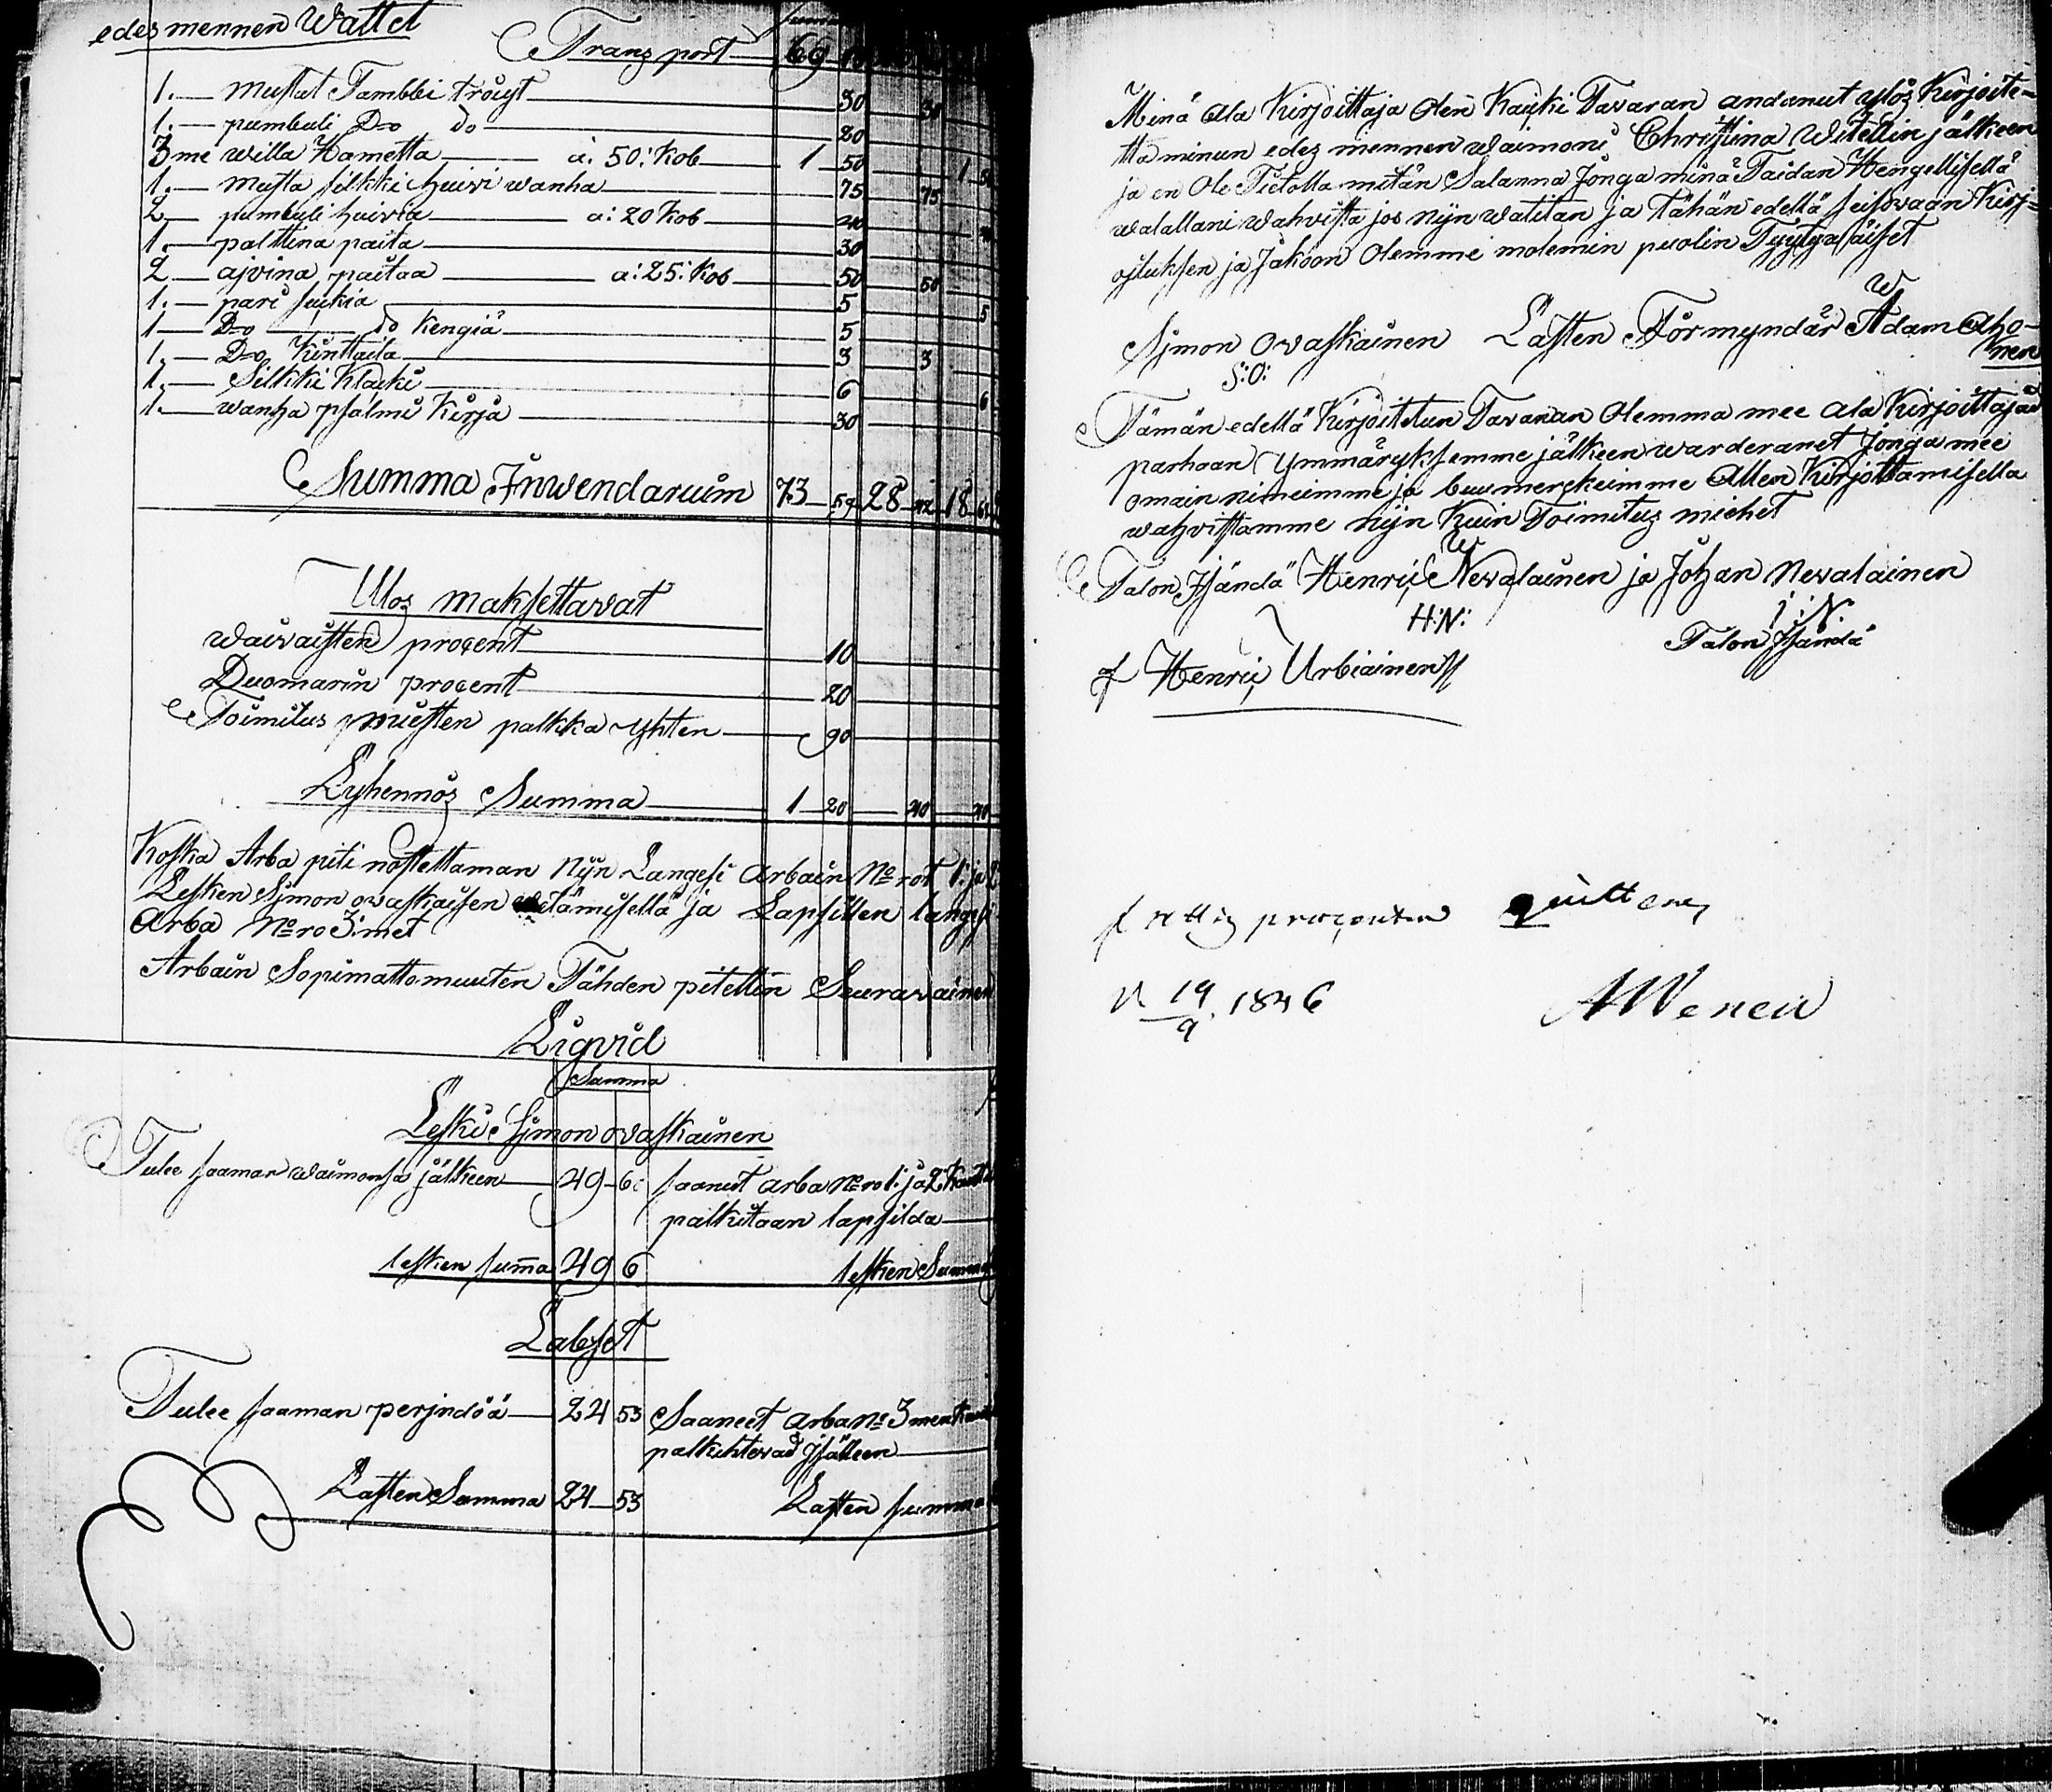 edes mennen Wattet
Transport 69
1. mustat Tambbi tröijt 30 30
1. pumbuli Do do 20
3me willa Hametta a: 50: Kob 1 50 1 50
1. musta silkki huivi wanha 75 75
2 pumbuli huivia a: 20 Kob 40
1. palttina paita 30
2 ajvina paitaa a: 25: Kob 50 50
1. pari sukia 5 5
1 Do do Kengiä 5
1. Do Kinttaita 3 3
1. Silkki Klacki 6 6
1. wanha psalmi Kirja 30
Summa Inwendarium 73 59 28 42 18
Ulos maksettavat
waivaisten procent 10
Duomarin procent 20
Toimitus miesten palkka yhten 90
Lyhennös Summa 1 20 40 40
Koska Arba piti nostettaman Nijn Langesi arbain No rot 1: ja 2
Lesken Sjmon ovaskaisen wetämisellä ja Lapsillen langesi
Arba No ro 3:met
Arbain Sopimattomuuten Tähden pitettin Seuravainen
Liqvid
Summa
Leski Sjmon ovaskainen
Tulee saaman waimonsa jälkeen 49 6 saanut arba No ro 1: ja 2
palkitaan lapsilda
lesken suma 49 6 lesken Summa
Labset
Tulee saaman perjndöä 24 53 Saaneet arba No 3men
palkihtevad jsälleen
Lasten Summa 24 53 Lasten summa
Minä ala Kirjoittaja olen Kaijki Tavaran andanut ylös Kirjoite-
tta minun edes mennen waimoni Christina Witellin jälkeen
ja en Ole Tietolla mitän Salanna Jonga minä Taidan Hengellisellä
walallani wahvistta jos nijn watitan ja tähän edellä seisovaan Kirj=
oituksen ja Jakoon Olemme molemin puolin Tyytyväiset
Sjmon ovaskainen Lasten Förmyndär Adam Aho-
nen
S:O:
Tämän edellä Kirjoitetun Tavaran Olemma mee ala Kirjoittajad
parhaan Ymmäryksemme jälkeen warderanet Jonga mee
omain nimeimme ja buumerckeimme Allen Kirjottamisella
wahvistamme nijn Kuin Toimitus miehet
Talon Jsändä Henric Nevalainen ja Johan Nevalainen
H:N: J:N.
Talon Jsändä
Henric Urbiainen
quitteras
19/9. 1846